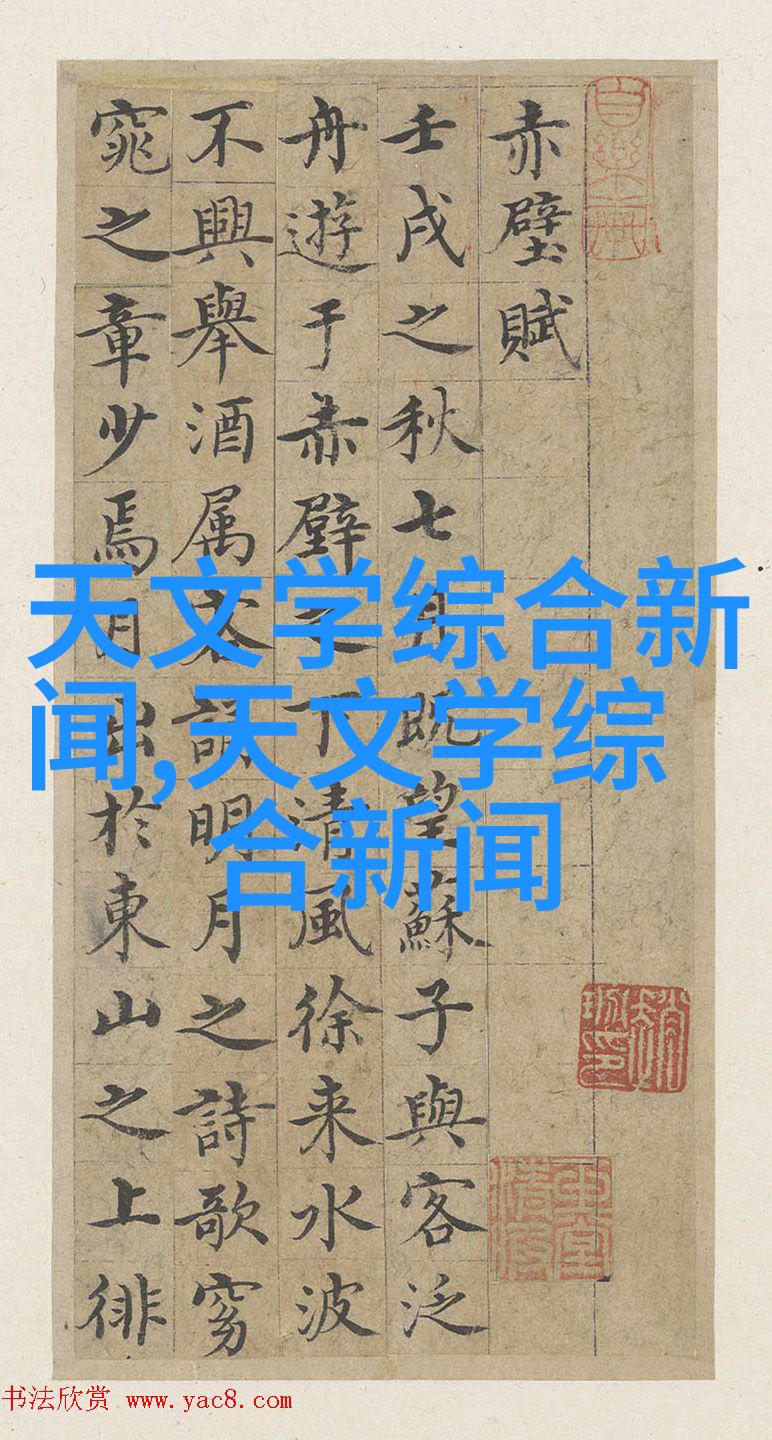 赤壁賦
壬戌之秋七月既望蘇子與客泛
舟遊于赤壁之下清風徐来水波
不興舉酒属客誦明月之詩歌窈
窕之章少焉月出於東山之上徘
天文学综合新
闻,天文学综
合新闻
书法欣赏 www.yac8.com